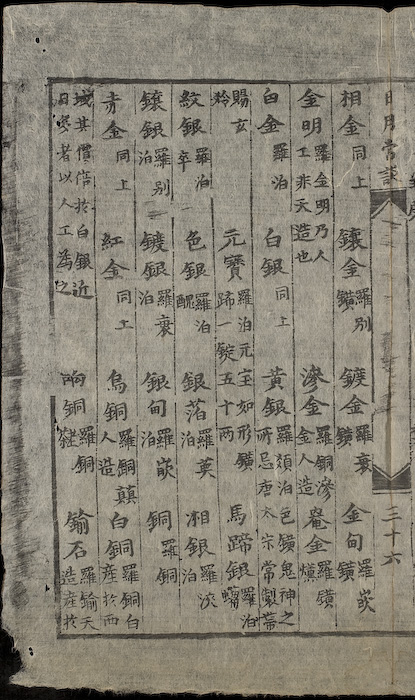 日月常談
三十六
相金 同上 鑲金 羅別鐄 鍍金 羅衰鐄 金甸 羅嵌鐄
金明 羅金明乃人工非天造也 滲金 羅銅滲金人造 罨金 羅鐄熿
白金 羅泊 白銀 同上 黃銀 羅類泊色鐄鬼神之所忌唐太宗常製帶
賜玄齡 元寶 羅泊元宝如形鐄蹄一錠五十两 馬蹄銀 羅泊
紋銀 羅泊卒 色銀 羅泊醜 銀落 羅泊 湘銀 羅泊
鑲銀 羅别泊 鍍銀 羅衰泊 銀甸 羅嵌泊 銅 羅銅
青金 同上 紅金 同上 烏銅 羅銅顛人造 白銅 羅銅白產於西
域其價倍於白銀近日寒者以人工為之 銅 羅銅 鍮石 羅鍮天造產於